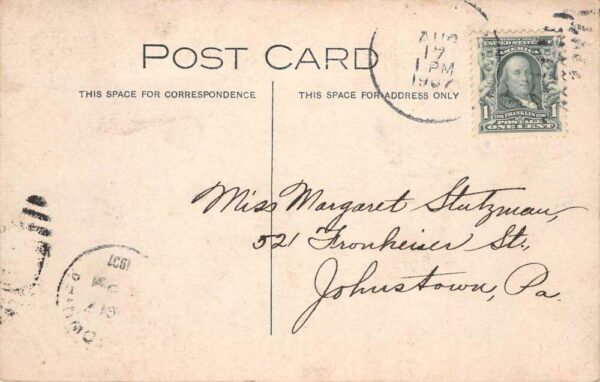 POST CARD
THIS SPACE FOR CORRESPONDENCE
THIS SPACE FOR ADDRESS ONLY
AUG
17
1 PM
1907
UNITED STATES
AMERICA
1
FRANKLIN
1
POSTAGE
ONE CENT
Miss Margaret Stutzman,
521 Fronheiser St.,
Johnstown, Pa.
1907